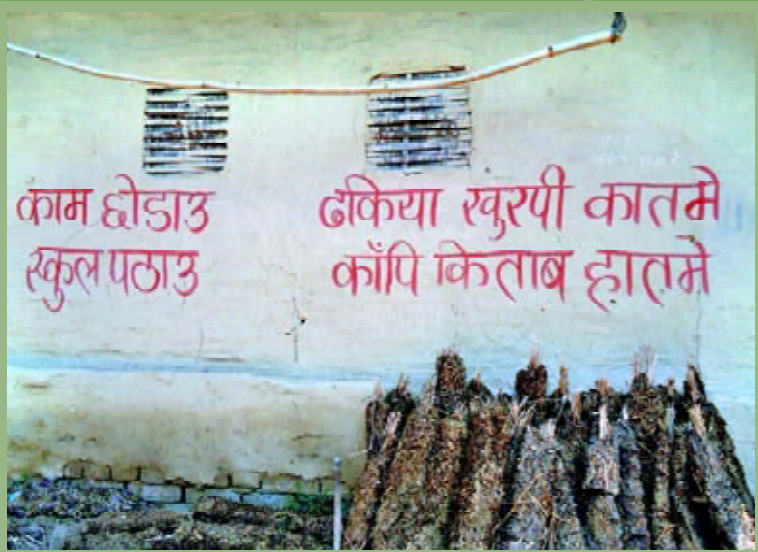 काम छोडाउ
स्कुल पठाउ
ढकिया खुरपी कातमे
काँपि किताब हातमे